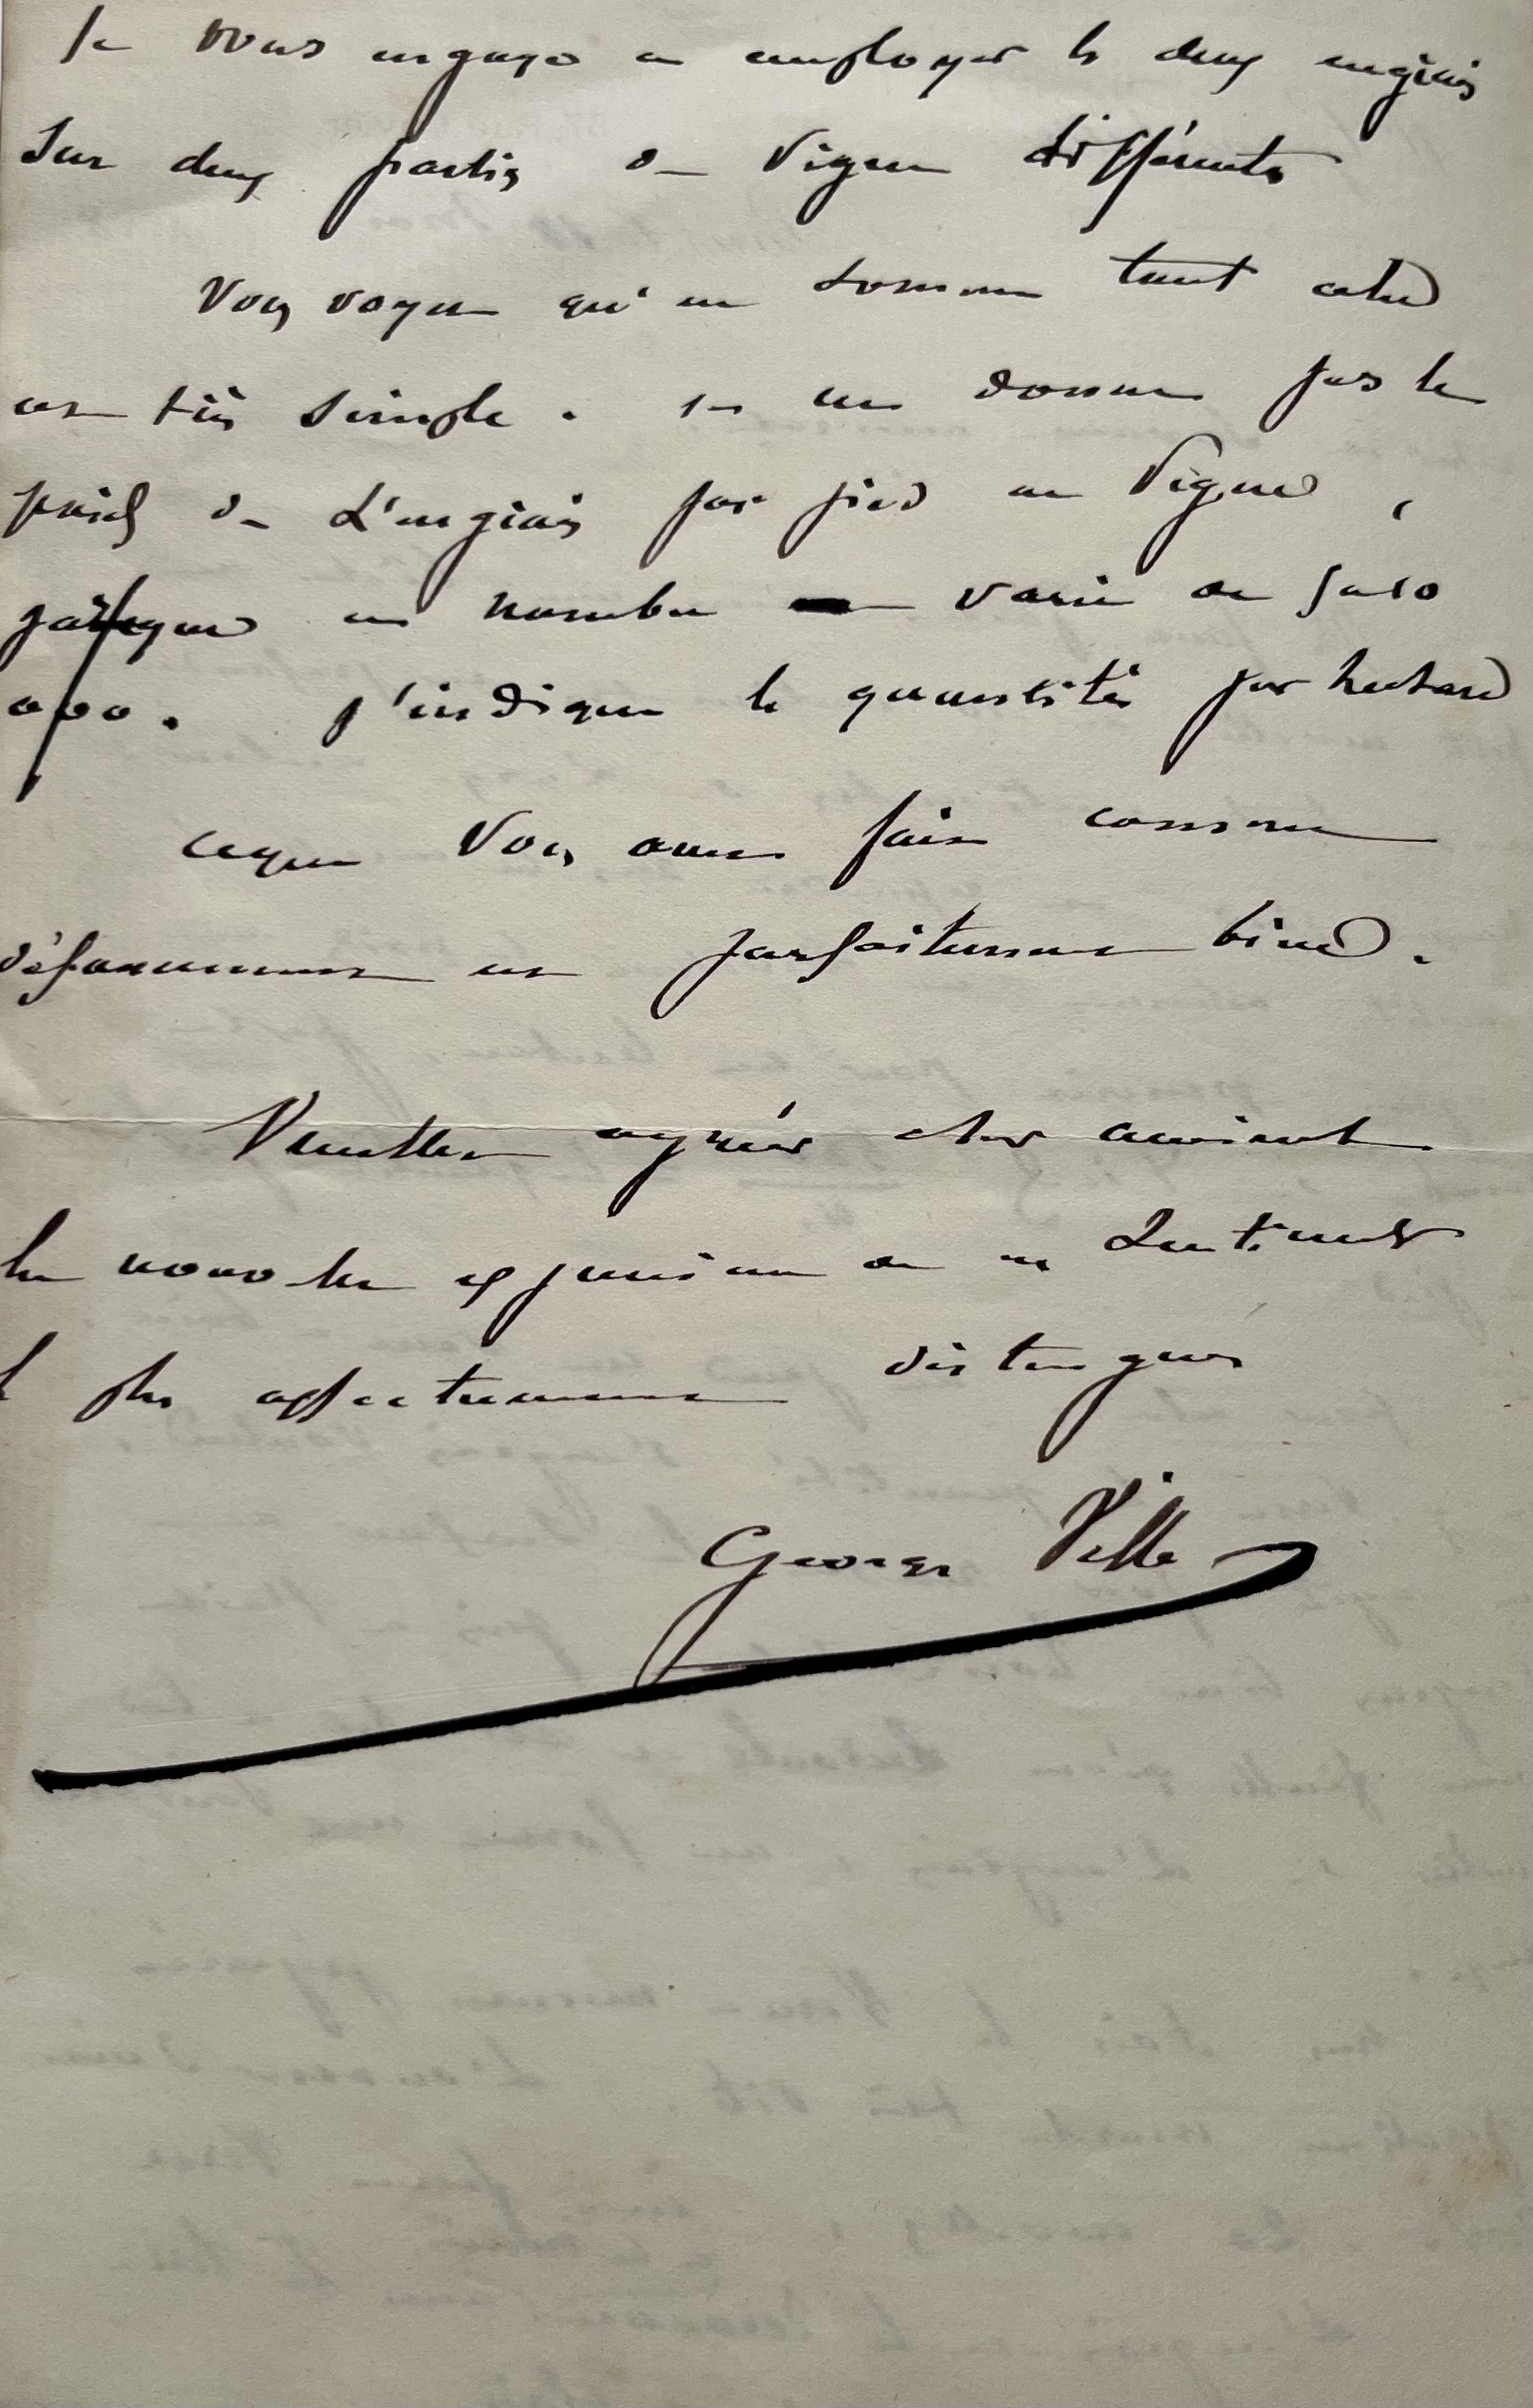 Je vous engage a employer les deux engrais
sur deux parties de vigne différentes
Vous voyez qu'en somme tout cela
est très simple. Je ne donne pas le
poids de l'engrais par pied de vigne,
parceque ce nombre varie de
J'indique les quantités par hectare
ceque vous avez fait comme
déparement est parfaitement bien.
Veuillez agréer cher
la nouvelle expression de mes sentiments
les plus affectueusement distingués
Georges Ville